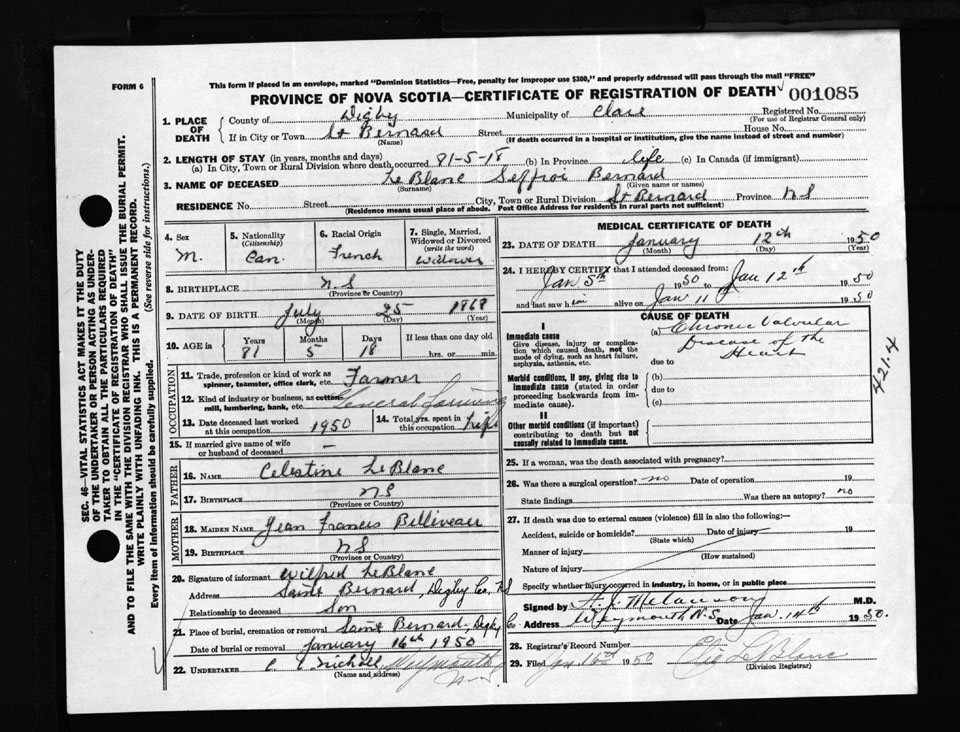 FORM 6
This form if placed in an envelope, marked "Dominion Statistics—Free, penalty for improper use $300," and properly addressed will pass through the mail "FREE"
PROVINCE OF NOVA SCOTIA—CERTIFICATE OF REGISTRATION OF DEATH 001085
1. PLACE OF DEATH County of Digby Municipality of Clare Registered No.
(For use of Registrar General only)
If in City or Town St Bernard Street House No.
(Name) (If death occurred in a hospital or institution, give the name instead of street and number)
2. LENGTH OF STAY (in years, months and days)
(a) In City, Town or Rural Division where death occurred 81-5-18 (b) In Province life (c) In Canada (if immigrant)
3. NAME OF DECEASED LeBlanc Seffroi Bernard
(Surname) (Given name or names)
RESIDENCE No. Street City, Town or Rural Division St Bernard Province N S
(Residence means usual place of abode. Post Office Address for residents in rural parts not sufficient)
4. Sex M.
5. Nationality (Citizenship) Can.
6. Racial Origin French
7. Single, Married, Widowed or Divorced (write the word) Widower
8. BIRTHPLACE N S
(Province or Country)
9. DATE OF BIRTH July 25 1868
(Month) (Day) (Year)
10. AGE in Years 81 Months 5 Days 18 If less than one day hrs. or min.
OCCUPATION
11. Trade, profession or kind of work as spinner, teamster, office clerk, etc. Farmer
12. Kind of industry or business, as cotton mill, lumbering, bank, etc. General farming
13. Date deceased last worked at this occupation 1950
14. Total yrs. spent in this occupation life
15. If married give name of wife or husband of deceased —
FATHER
16. NAME Celestine LeBlanc
17. BIRTHPLACE N S
(Province or Country)
MOTHER
18. MAIDEN NAME Jean Francis Belliveau
19. BIRTHPLACE N S
(Province or Country)
20. Signature of informant Wilfred LeBlanc
Address Saint Bernard, Digby Co, N S
Relationship to deceased Son
21. Place of burial, cremation or removal Saint Bernard, Digby Co
Date of burial or removal January 16th 1950
22. UNDERTAKER Nicholl Weymouth N.S.
(Name and address)
MEDICAL CERTIFICATE OF DEATH
23. DATE OF DEATH January 12th 1950
(Month) (Day) (Year)
24. I HEREBY CERTIFY that I attended deceased from:
Jan 5th 1950 to Jan 12th 1950
and last saw him alive on Jan 11 1950
CAUSE OF DEATH
I
Immediate cause
Give disease, injury or complication which caused death, not the mode of dying, such as heart failure, asphyxia, asthenia, etc.
(a) Chronic Valvular
Disease of the
Heart
due to
Morbid conditions, if any, giving rise to immediate cause (stated in order proceeding backwards from immediate cause).
(b)
due to
(c)
II
Other morbid conditions (if important) contributing to death but not causally related to immediate cause.
421.4
25. If a woman, was the death associated with pregnancy?
26. Was there a surgical operation? no Date of operation 19
State findings Was there an autopsy? no
27. If death was due to external causes (violence) fill in also the following:—
Accident, suicide or homicide? Date of injury 19
(State which)
Manner of injury
(How sustained)
Nature of injury
Specify whether injury occurred in industry, in home, or in public place
Signed by Melanson M.D.
Address Weymouth N.S. Date Jan. 14th 1950.
28. Registrar's Record Number
29. Filed Jan 16th 1950 Elie LeBlanc
(Division Registrar)
SEC. 46—VITAL STATISTICS ACT MAKES IT THE DUTY
OF THE UNDERTAKER OR PERSON ACTING AS UNDER-
TAKER TO OBTAIN ALL THE PARTICULARS REQUIRED
IN THE "CERTIFICATE OF REGISTRATION OF DEATH"
AND TO FILE THE SAME WITH THE DIVISION REGISTRAR WHO SHALL ISSUE THE BURIAL PERMIT.
WRITE PLAINLY WITH UNFADING INK. THIS IS A PERMANENT RECORD.
Every item of information should be carefully supplied. (See reverse side for instructions.)